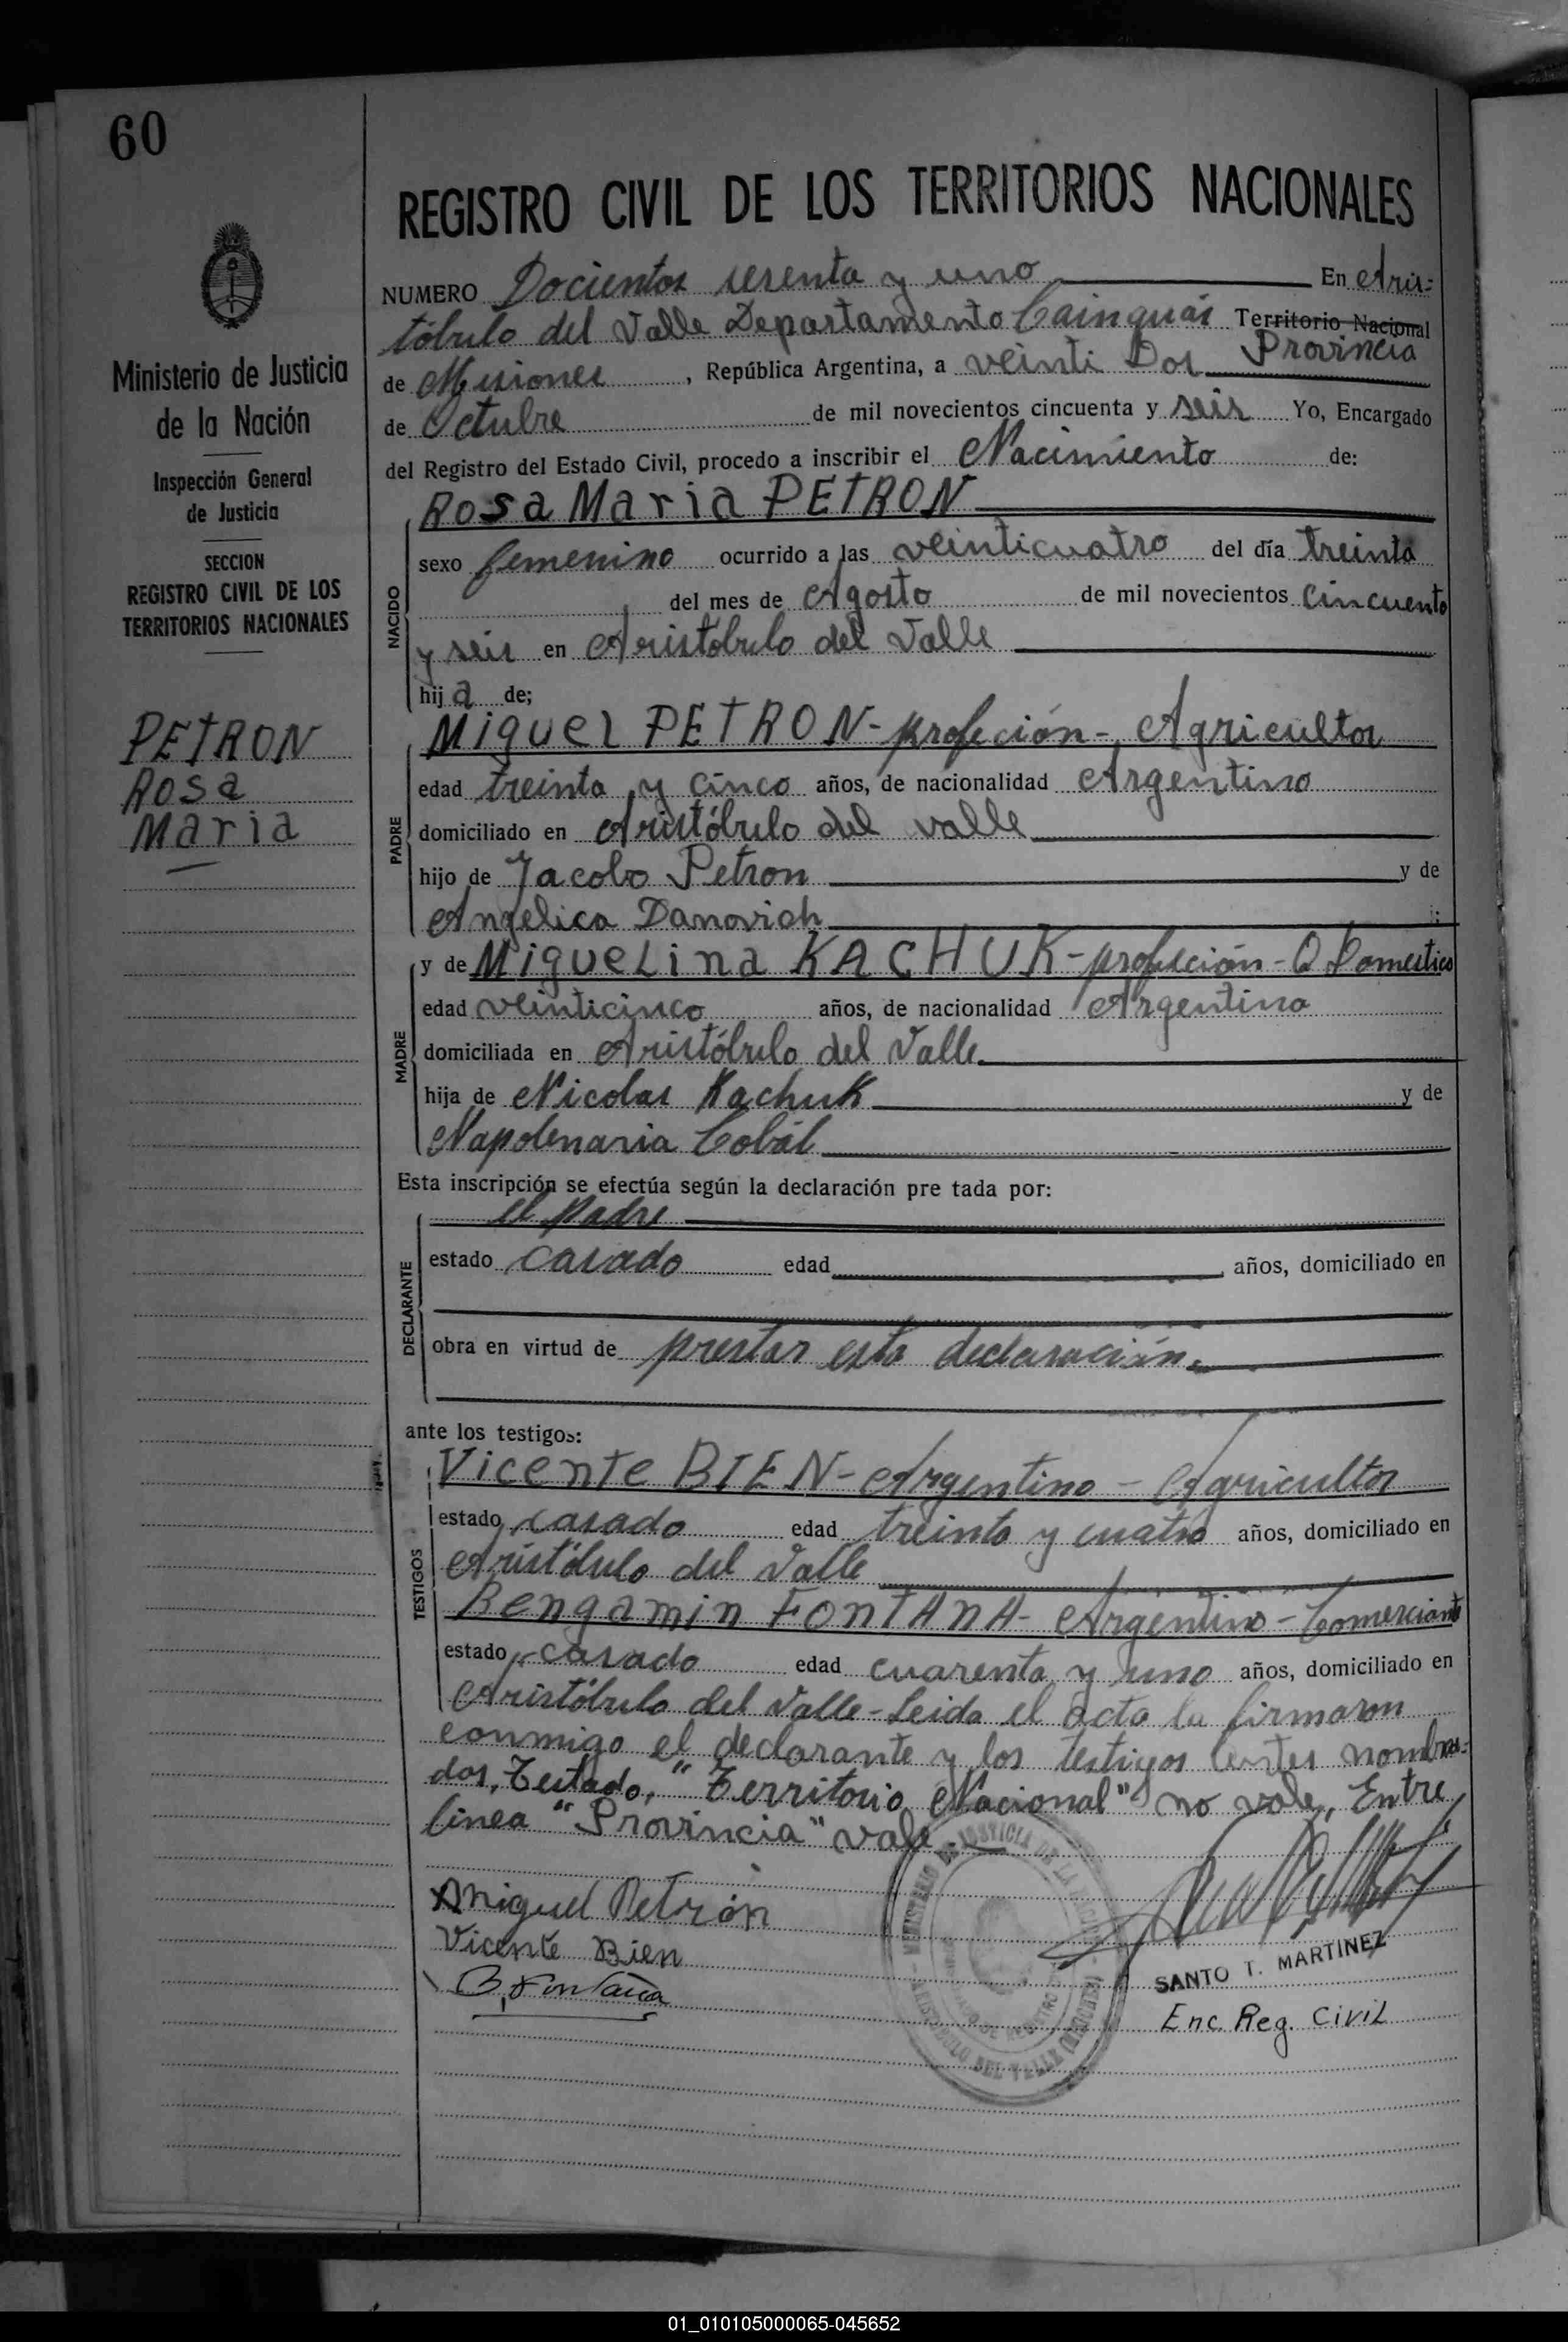 60
REGISTRO CIVIL DE LOS TERRITORIOS NACIONALES
Ministerio de Justicia
de la Nación
Inspección General
de Justicia
SECCION
REGISTRO CIVIL DE LOS
TERRITORIOS NACIONALES
PETRON
Rosa
Maria
NUMERO Docientos sesenta y uno En Aris=
tóbulo del Valle Departamento Cainguás Territorio Nacional
Provincia
de Misiones, República Argentina, a veinti Dos
de Octubre de mil novecientos cincuenta y seis Yo, Encargado
del Registro del Estado Civil, procedo a inscribir el Nacimiento de:
Rosa Maria PETRON
NACIDO
sexo femenino ocurrido a las veinticuatro del día treinta
del mes de Agosto de mil novecientos cincuenta
y seis en Aristóbulo del Valle
hija de;
PADRE
Miguel PETRON - profeción - Agricultor
edad treinta y cinco años, de nacionalidad Argentino
domiciliado en Aristóbulo del valle
hijo de Jacobo Petron y de
Angelica Danovich;
MADRE
y de Miguelina KACHUK - profeción - Q Domestico
edad veinticinco años, de nacionalidad Argentina
domiciliada en Aristóbulo del Valle
hija de Nicolas Kachuk y de
Napolenaria Cobál
Esta inscripción se efectúa según la declaración pre tada por:
DECLARANTE
el padre
estado casado edad años, domiciliado en
obra en virtud de prestar esta declaración
ante los testigos:
TESTIGOS
Vicente BIEN - Argentino - Agricultor
estado casado edad treinta y cuatro años, domiciliado en
Aristóbulo del Valle
Bengamin FONTANA - Argentino - Comerciante
estado casado edad cuarenta y uno años, domiciliado en
Aristóbulo del Valle - Leida el acta la firmaron
conmigo el declarante y los testigos antes nombra=
dos, Testado, "Territorio Nacional" no vale, Entre
linea "Provincia" vale.
Miguel Petrón
Vicente Bien
B. Fontana
MINISTERIO DE JUSTICIA DE LA NACION
ARISTOBULO DEL VALLE (MISIONES)
SANTO T. MARTINEZ
Enc. Reg. Civil
01_010105000065-045652